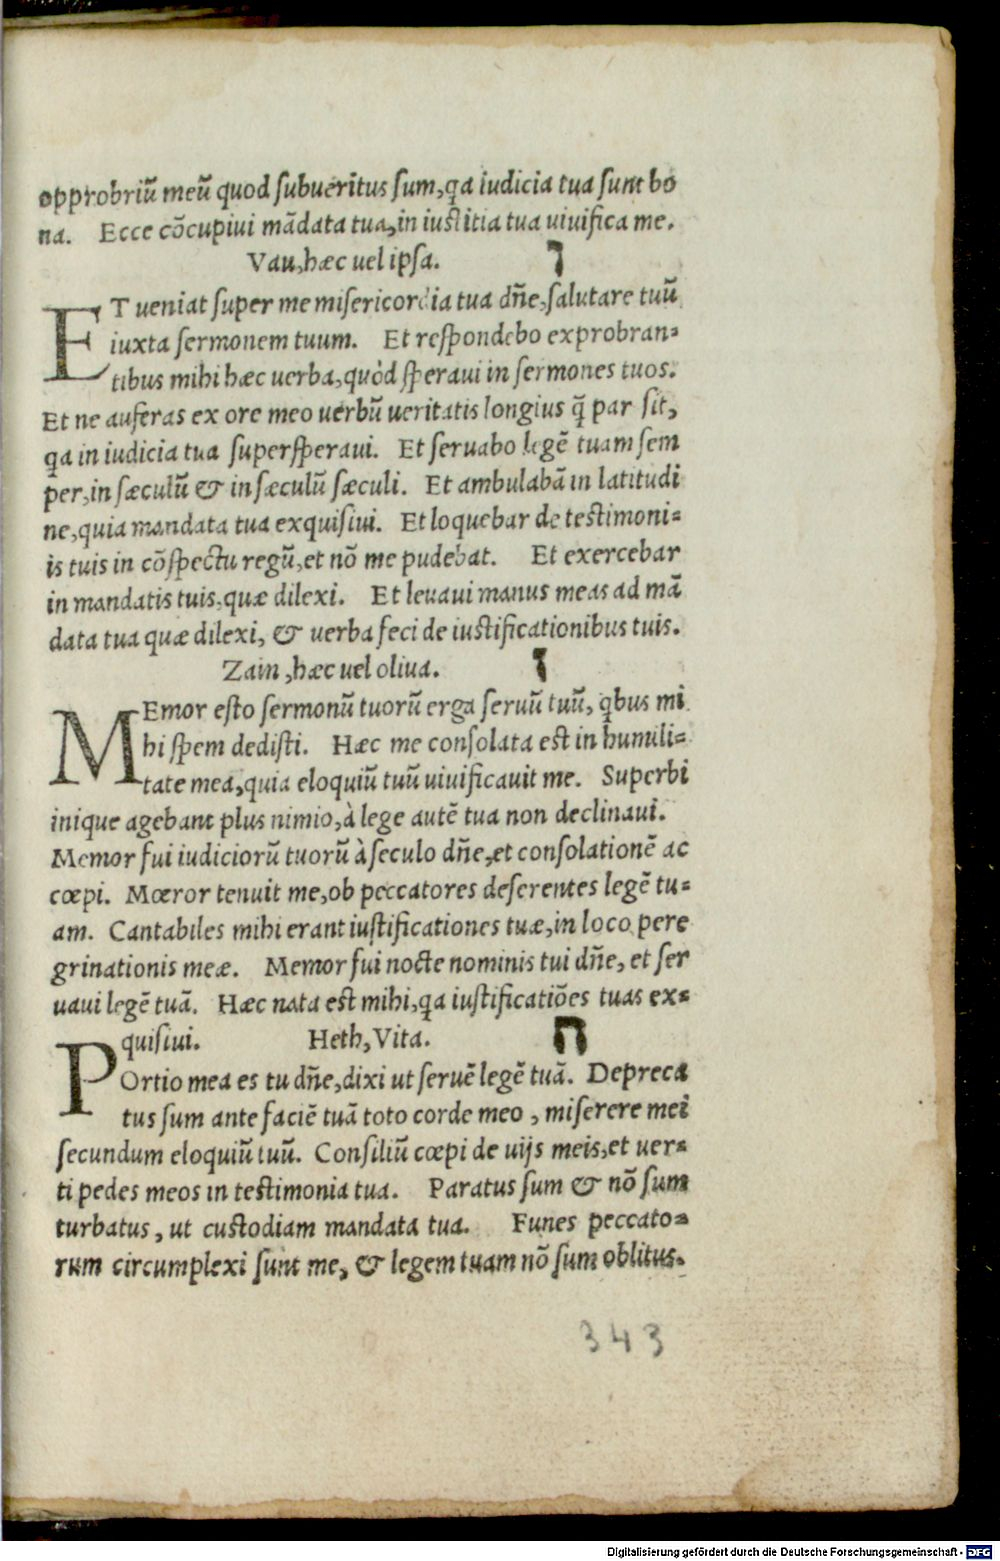 opprobriū meū quod subueritus sum, qa iudicia tua sunt bo
na. Ecce cōcupiui mādata tua, in iustitia tua uiuifica me.
Vau, hæc uel ipsa. ו
ET ueniat super me misericordia tua dñe, salutare tuū
iuxta sermonem tuum. Et respondebo exprobran=
tibus mihi hæc uerba, quòd speraui in sermones tuos.
Et ne auferas ex ore meo uerbū ueritatis longius q̄ par sit,
qa in iudicia tua supersperaui. Et seruabo legē tuam sem
per, in sæculū & in sæculū sæculi. Et ambulabā in latitudi
ne, quia mandata tua exquisiui. Et loquebar de testimoni=
is tuis in cōspectu regū, et nō me pudebat. Et exercebar
in mandatis tuis, quæ dilexi. Et leuaui manus meas ad mā
data tua quæ dilexi, & uerba feci de iustificationibus tuis.
Zain, hæc uel oliua. ז
MEmor esto sermonū tuorū erga seruū tuū, qbus mi
hi spem dedisti. Hæc me consolata est in humili=
tate mea, quia eloquiū tuū uiuificauit me. Superbi
inique agebant plus nimio, à lege autē tua non declinaui.
Memor fui iudiciorū tuorū à seculo dñe, et consolationē ac
cœpi. Mœror tenuit me, ob peccatores deserentes legē tu=
am. Cantabiles mihi erant iustificationes tuæ, in loco pere
grinationis meæ. Memor fui nocte nominis tui dñe, et ser
uaui legē tuā. Hæc nata est mihi, qa iustificatiōes tuas ex=
quisiui. Heth, Vita. ח
POrtio mea es tu dñe, dixi ut seruē legē tuā. Depreca
tus sum ante faciē tuā toto corde meo, miserere mei
secundum eloquiū tuū. Consiliū cœpi de uijs meis, et uer=
ti pedes meos in testimonia tua. Paratus sum & nō sum
turbatus, ut custodiam mandata tua. Funes peccato=
rum circumplexi sunt me, & legem tuam nō sum oblitus.
343
Digitalisierung gefördert durch die Deutsche Forschungsgemeinschaft - DFG